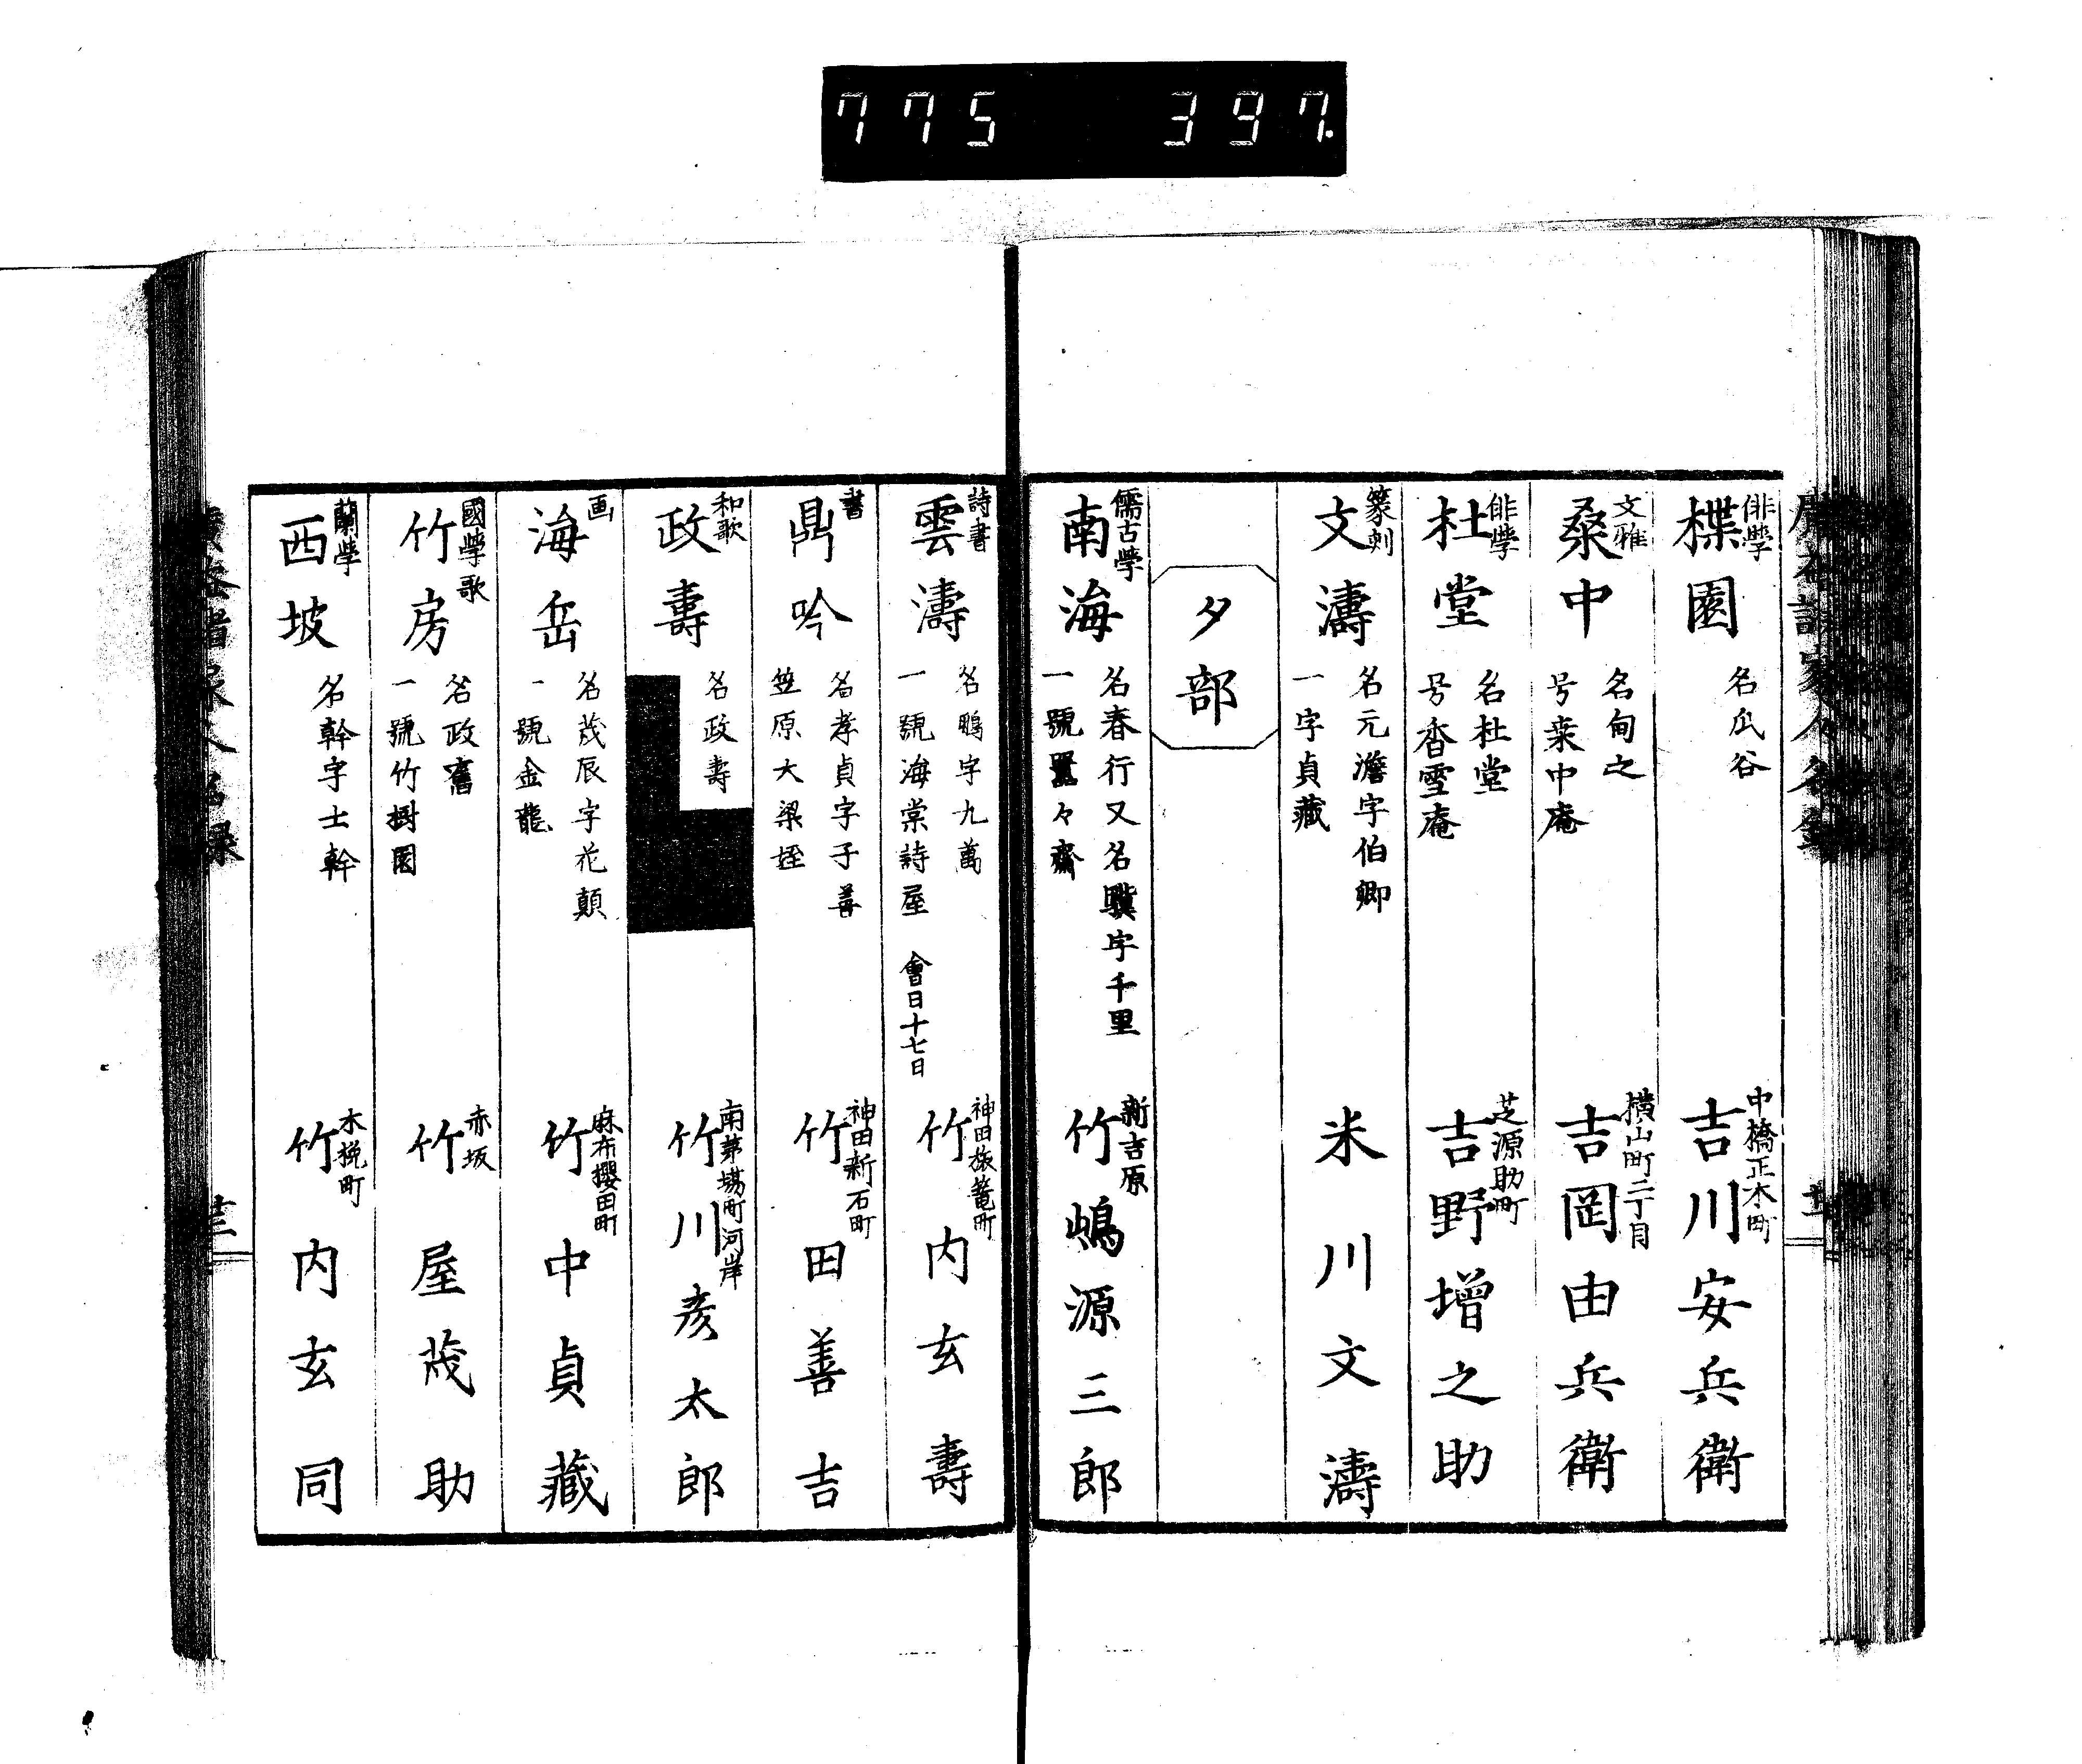 775 397.
俳学
楪園
名瓜谷
中橋正木町
吉川安兵衛
文雅
桑中
名甸之
号桒中庵
横山町二丁目
吉岡由兵衛
俳学
杜堂
名杜堂
号香雪庵
芝源助町
吉野増之助
篆刻
文濤
名元澹字伯卿
一字貞藏
米川文濤
夕部
儒古學
南海
名春行又名驥字千里
一號囂々齋
新吉原
竹嶋源三郎
詩書
雲濤
名鵬字九萬
一號海棠詩屋
會日十七日
神田旅篭町
竹内玄壽
書
鼎吟
名孝貞字子善
笠原大梁姪
神田新石町
竹田善吉
和歌
政壽
名政壽
南茅場町河岸
竹川彦太郎
画
海岳
名茂辰字花顛
一號金龍
麻布櫻田町
竹中貞藏
國學歌
竹房
名政舊
一號竹樹園
赤坂
竹屋茂助
蘭學
西坡
名幹字士幹
木挽町
竹内玄同